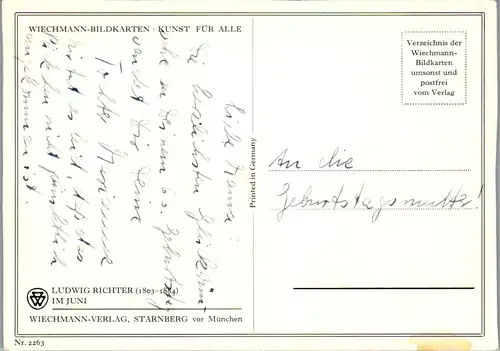 WIECHMANN-BILDKARTEN · KUNST FÜR ALLE
Liebe Mama!
Die herzlichsten Glückwün-
sche zu Deinem 60. Geburtstag
sendet Dir Deine
Tochter
tut es leid, daß das
nicht pünktlich
angekommen ist.
LUDWIG RICHTER (1803-1884)
IM JUNI
WIECHMANN-VERLAG, STARNBERG vor München
Nr. 2263
Printed in Germany
Verzeichnis der
Wiechmann-
Bildkarten
umsonst und
postfrei
vom Verlag
An die
Geburtstagsmutter!